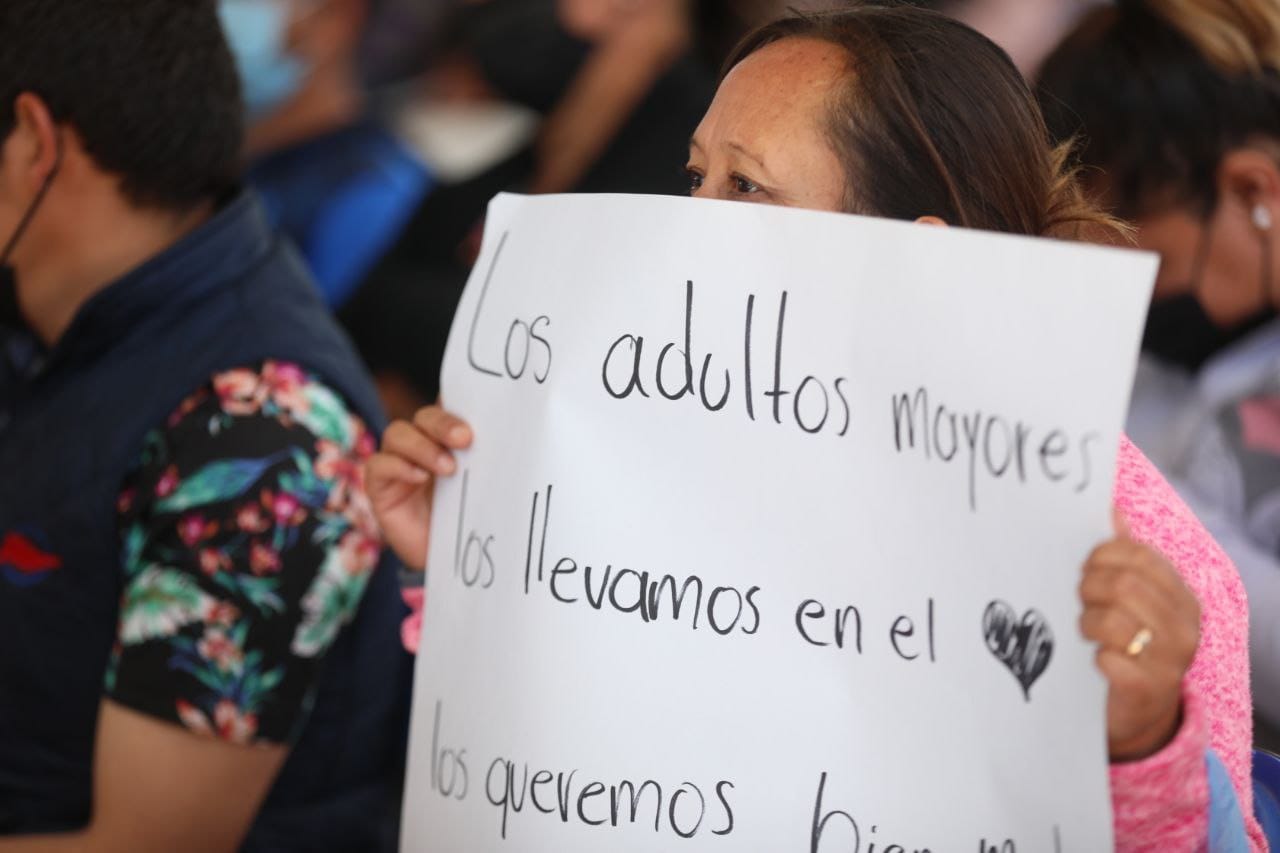 Los adultos mayores
los llevamos en el
los queremos bien